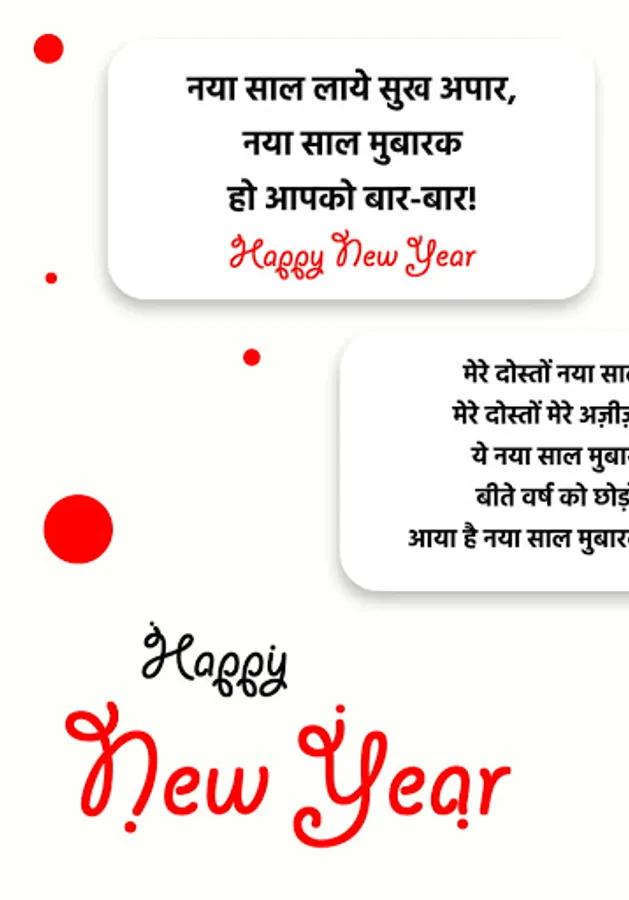 नया साल लाये सुख अपार,
नया साल मुबारक
हो आपको बार-बार!
Happy New Year
मेरे दोस्तों नया
मेरे दोस्तों मेरे
ये नया साल
बीते वर्ष को
आया है नया साल
Happy
New Year